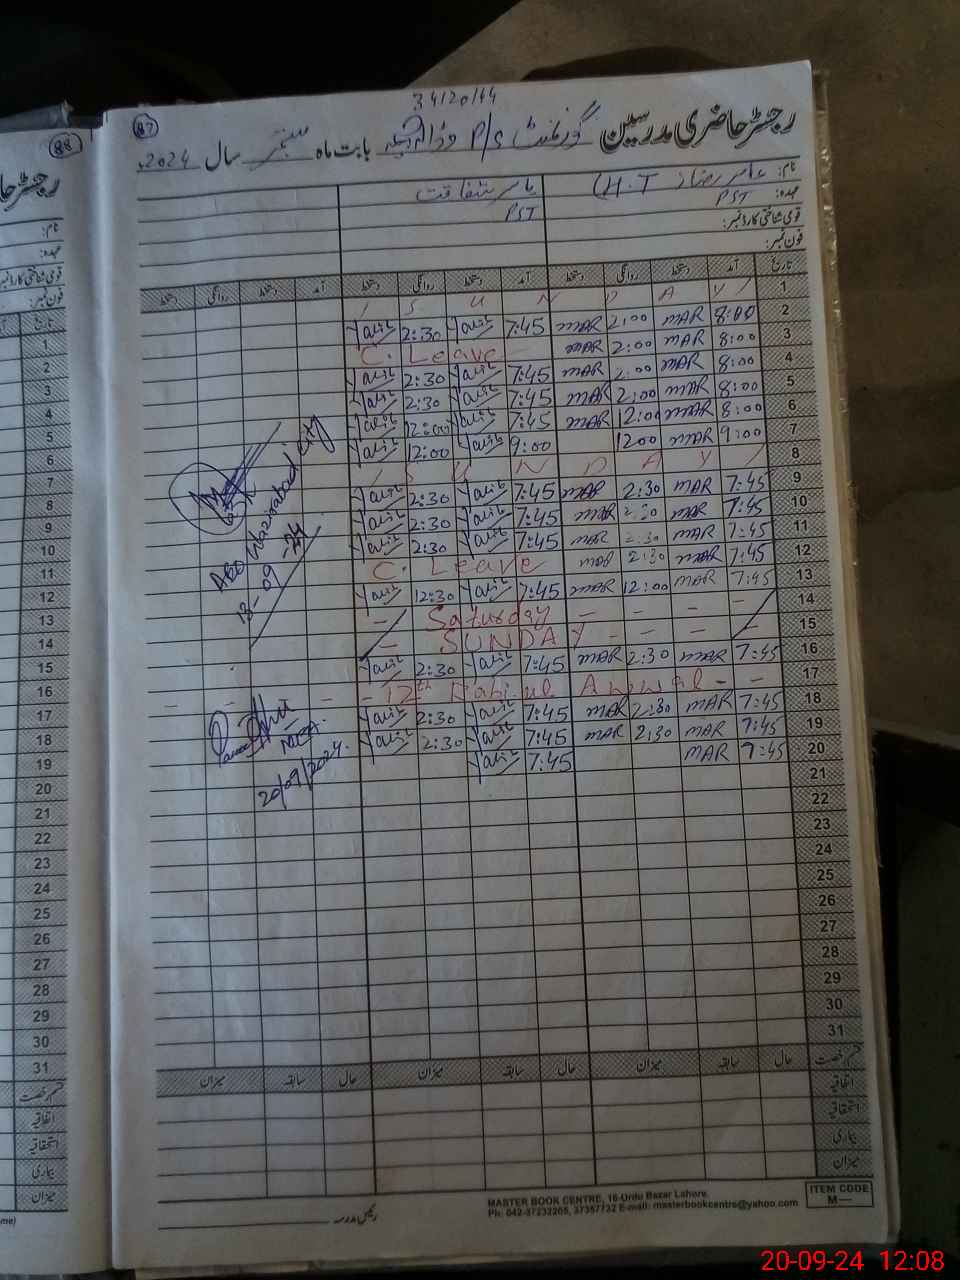 34120144
87
رجسٹر حاضری مدرسین گورنمنٹ P/S بابت ماہ ستمبر سال 2024ء
نام: عامر رضا (H.T یاسر شفاقت
عہدہ: PST PST
قومی شناختی کارڈ نمبر:
فون نمبر:
تاریخ آمد دستخط روانگی دستخط آمد دستخط روانگی دستخط آمد دستخط روانگی دستخط
1 / S U N D A Y /
2 8:00 MAR 2:00 MAR 7:45 2:30
3 8:00 MAR 2:00 MAR C. Leave
4 8:00 MAR 2:00 MAR 7:45 2:30
5 8:00 MAR 2:00 MAR 7:45 2:30
6 8:00 MAR 12:00 MAR 7:45 12:00
7 9:00 MAR 1200 9:00 12:00
8 / S U N D A Y /
9 7:45 MAR 2:30 MAR 7:45 2:30
10 7:45 MAR 2:30 MAR 7:45 2:30
11 7:45 MAR 2:30 MAR 7:45 2:30
12 7:45 MAR 2:30 MAR C. Leave
13 7:45 MAR 12:00 MAR 7:45 12:30
14 - - - - Saturday -
15 - - - SUNDAY -
16 7:45 MAR 2:30 MAR 7:45 2:30
17 - - 12th Rabi-ul Awwal - - - - -
18 7:45 MAR 2:30 MAR 7:45 2:30
19 7:45 MAR 2:30 MAR 7:45 2:30
20 7:45 MAR 7:45
21
22
23
24
25
26
27
28
29
30
31
AEO Wazirabad City
18-09-24
MEA
20/09/2024.
قسم رخصت حال سابقہ میزان حال سابقہ میزان حال سابقہ میزان
اتفاقیہ
استحقاقیہ
بیماری
میزان
رئیس مدرسہ
MASTER BOOK CENTRE, 16-Urdu Bazar Lahore.
Ph: 042-37232205, 37357732 E-mail: masterbookcentre@yahoo.com
ITEM CODE
M—
88
رجسٹر حا
نام:
عہدہ:
قومی شناختی کارڈ نمبر
فون نمبر:
تاریخ
1
2
3
4
5
6
7
8
9
10
11
12
13
14
15
16
17
18
19
20
21
22
23
24
25
26
27
28
29
30
31
قسم رخصت
اتفاقیہ
استحقاقیہ
بیماری
میزان
20-09-24 12:08